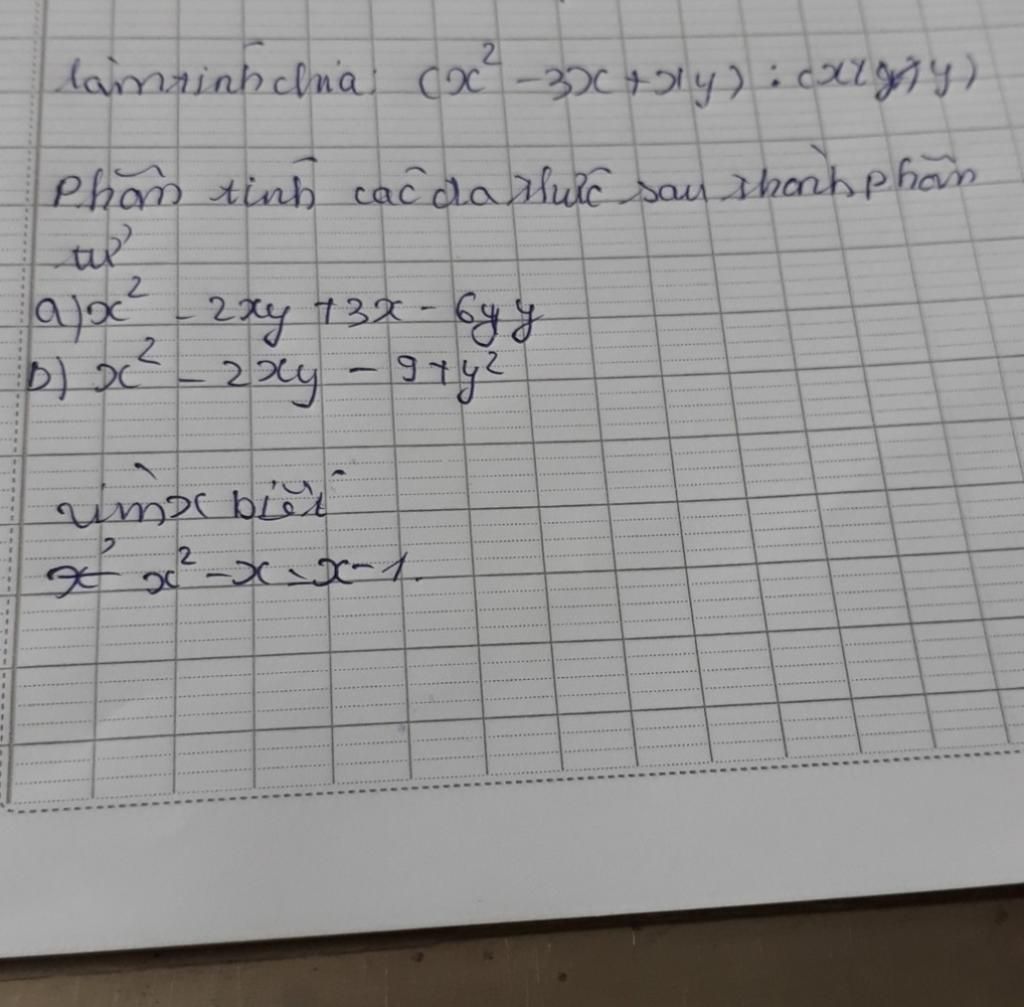 làm tính chia: (x² - 3x + xy) : (x + y)
Phân tính các đa thức sau thành phân
tử
a) x² - 2xy + 3x - 6y y
b) x² - 2xy - 9 + y²
tìm x biết
x² - x = x - 1.